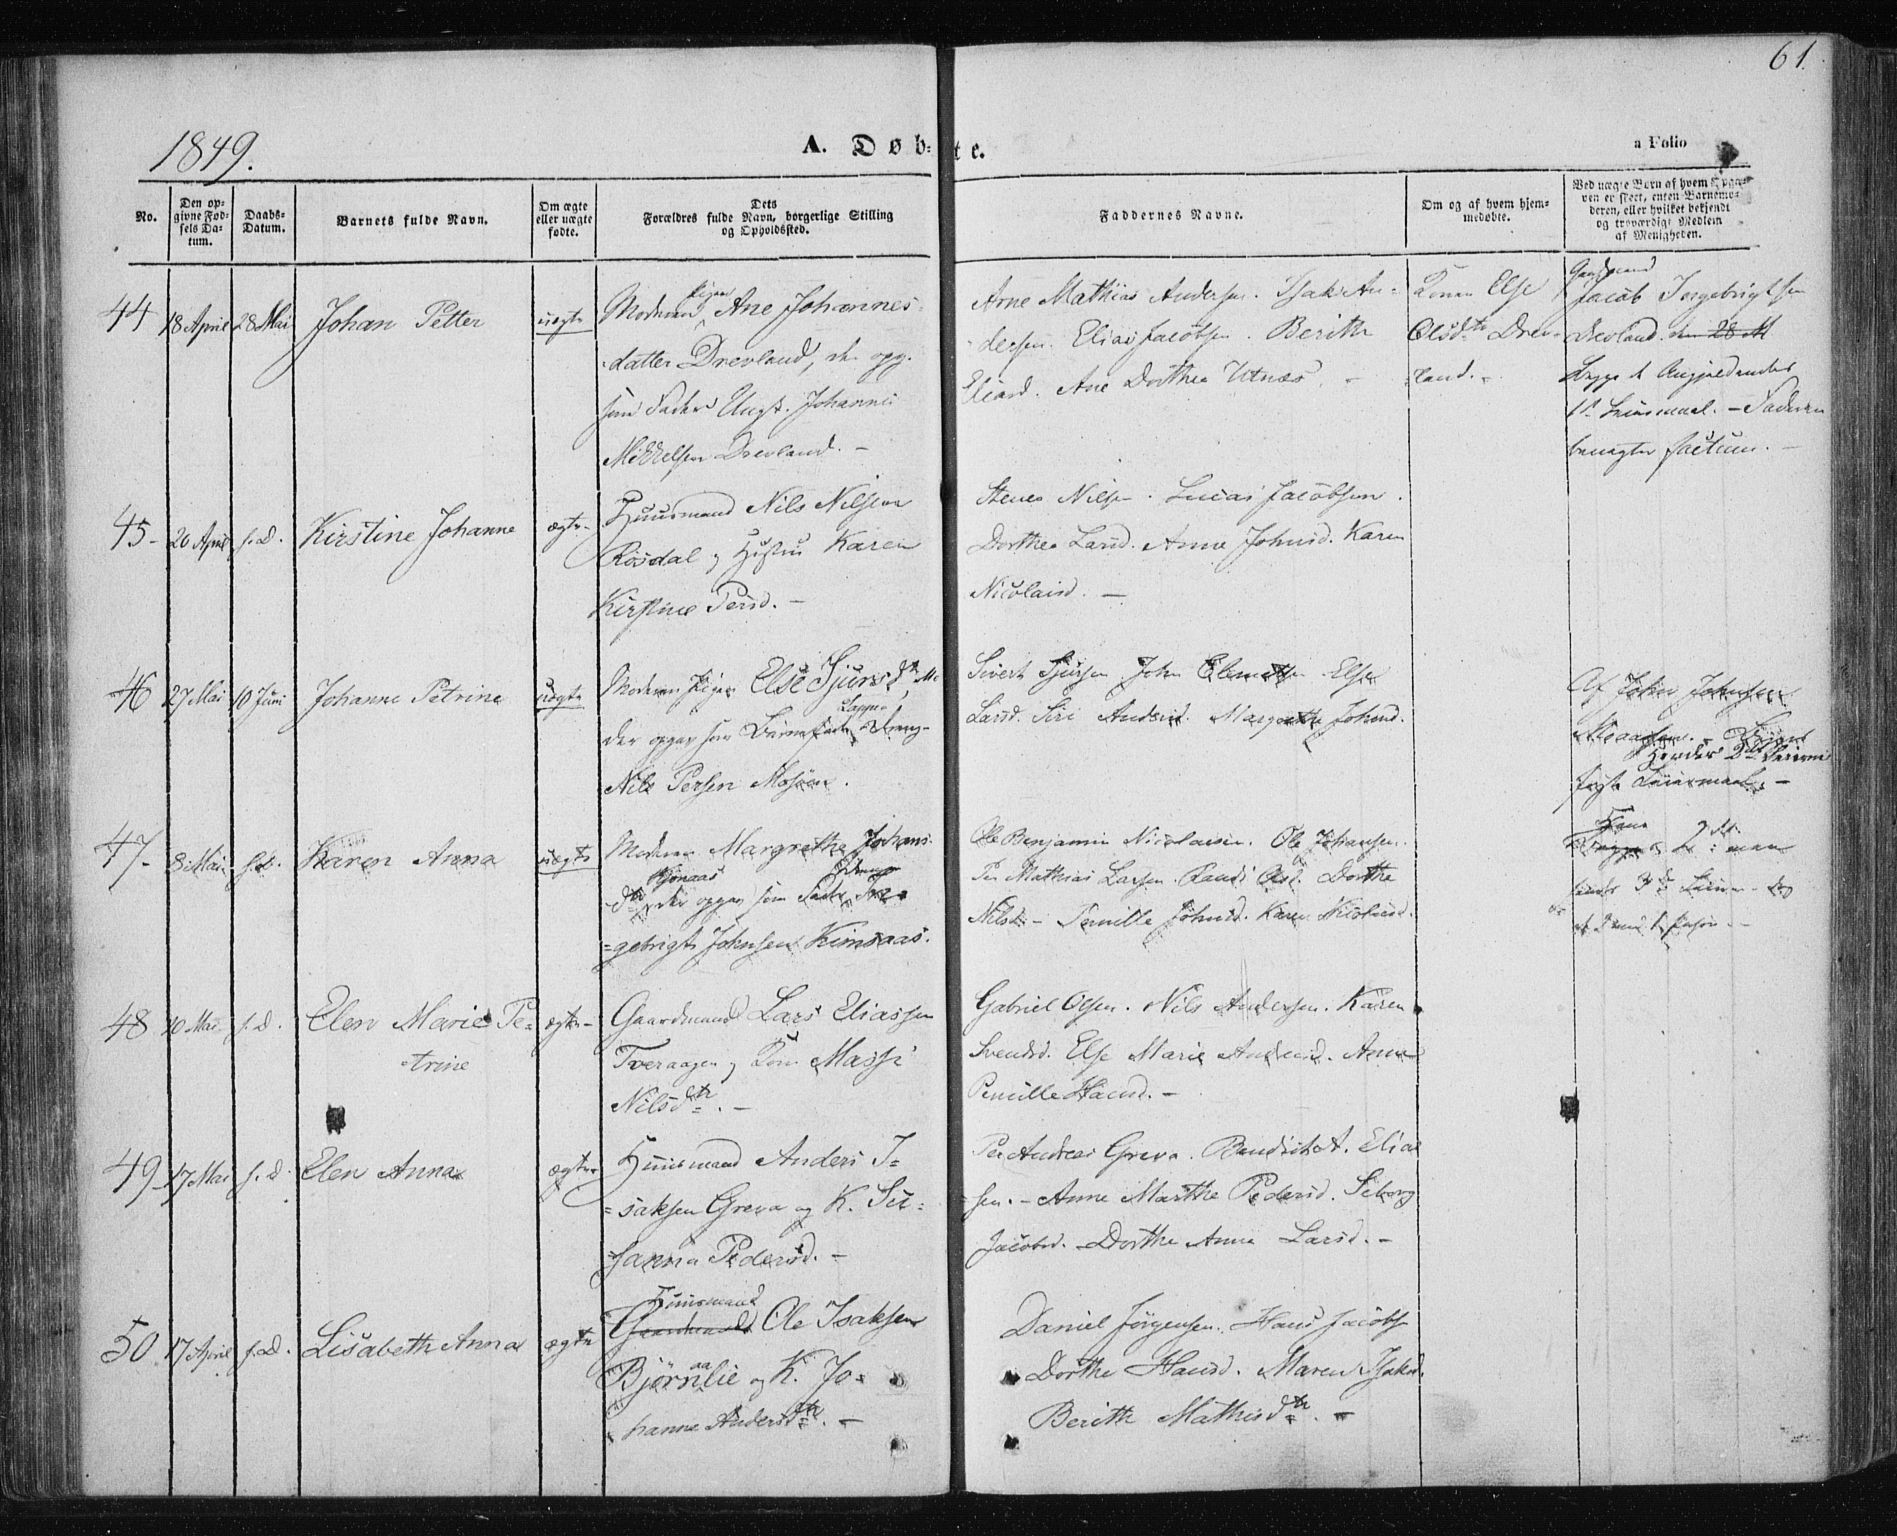 61.
1849.
A. Døbte.
a Folio
No.
Den opgivne Fødsels Datum.
Daabs-Datum.
Barnets fulde Navn.
Om ægte eller uægte fødte.
Dets Forældres fulde Navn, borgerlige Stilling og Opholdssted.
Faddernes Navne.
Om og af hvem hjemmedøbte.
Ved uægte Børn af hvem Opgaven er skeet, enten Barnemoderen, eller hvilket bekjendt og troværdigt Medlem af Menigheden.
44 18 April 28 Mai Johan Petter uægte
Moderen Pigen Ane Johannes-
datter Drevland, den opg.
som Fader Ungk. Johannes
Mikkelsen Drevland. -
Arne Mathias Andersen. Isak An-
dersen. Elias Jacobsen. Berith
Eliasd. Ane Dorthea Utnæs. -
Konen Else
Olsdtr Drev-
land. -
Gaardmand
Jacob Ingebrigtsen
Drevland. den 28 M
Begge d. Angjeldendes
1st Leiermaal. - Faderen
benægter factum. -
45- 20 April s.D. Kirstine Johanne ægte-
Huusmand Nils Nilsen
Røsdal og Hustru Karen
Kirstine Persd. -
Nilsen. Lucas Jacobsen.
Dorthea Larsd. Anne Johnsd. Karen
Nicolaisd. -
46 27 Mai 10 Juni Johanne Petrine uægte
Moderen Pigen Else Sjursdtr
der opgav som Barnefader Lappe-Dreng
Nils Persen Mosjøen.
Sivert Sjursen John Clemetsen Else
Larsd. Siri Andersd. Margrethe Johnsd.
Af John Johnsen
første Leiermaal. -
47- 8 Mai s.D. Karen Anna uægte
Moderen Margrethe Johans-
dtr der opgav som Fader Dreng In-
gebrigt Johnsen Kimsaas.
Ole Benjamin Nicolaisen. Ole Johansen.
Per Mathias Larsen. Randi Olsd. Dorthe
Nilsd. - Pernille Johnsd. Karen Nicolaisd.
48 10 Mai s.D. Elen Marie Pe-
trine ægte-
Gaardmand Lars Eliassen
Tveraagen og Kone Massi
Nilsdtr. -
Gabriel Olsen. Nils Andersen. Karen
Svendsd. Else Marie Andersd. Anne
Pernille Hansd. -
49- 17 Mai s.D. Elen Anna ægte-
Huusmand Anders I-
saksen Greva og K. Su-
sanna Pedersd. -
Per Andreas Greva. Bendict A. Elias
sen. - Anne Marthe Pedersd. Siborg
Jacobsd. - Dorthe Anna Larsd. -
50 17 April s.D. Lisabeth Anna ægte
Huusmand
Gaardmand Ole Isaksen
Bjørnlie og K. Jo-
hanne Andersdtr. -
Daniel Jörgensen. Hans Jacobs
Dorthe Hansd. Maren Isaksd.
Berith Mathisdtr. -